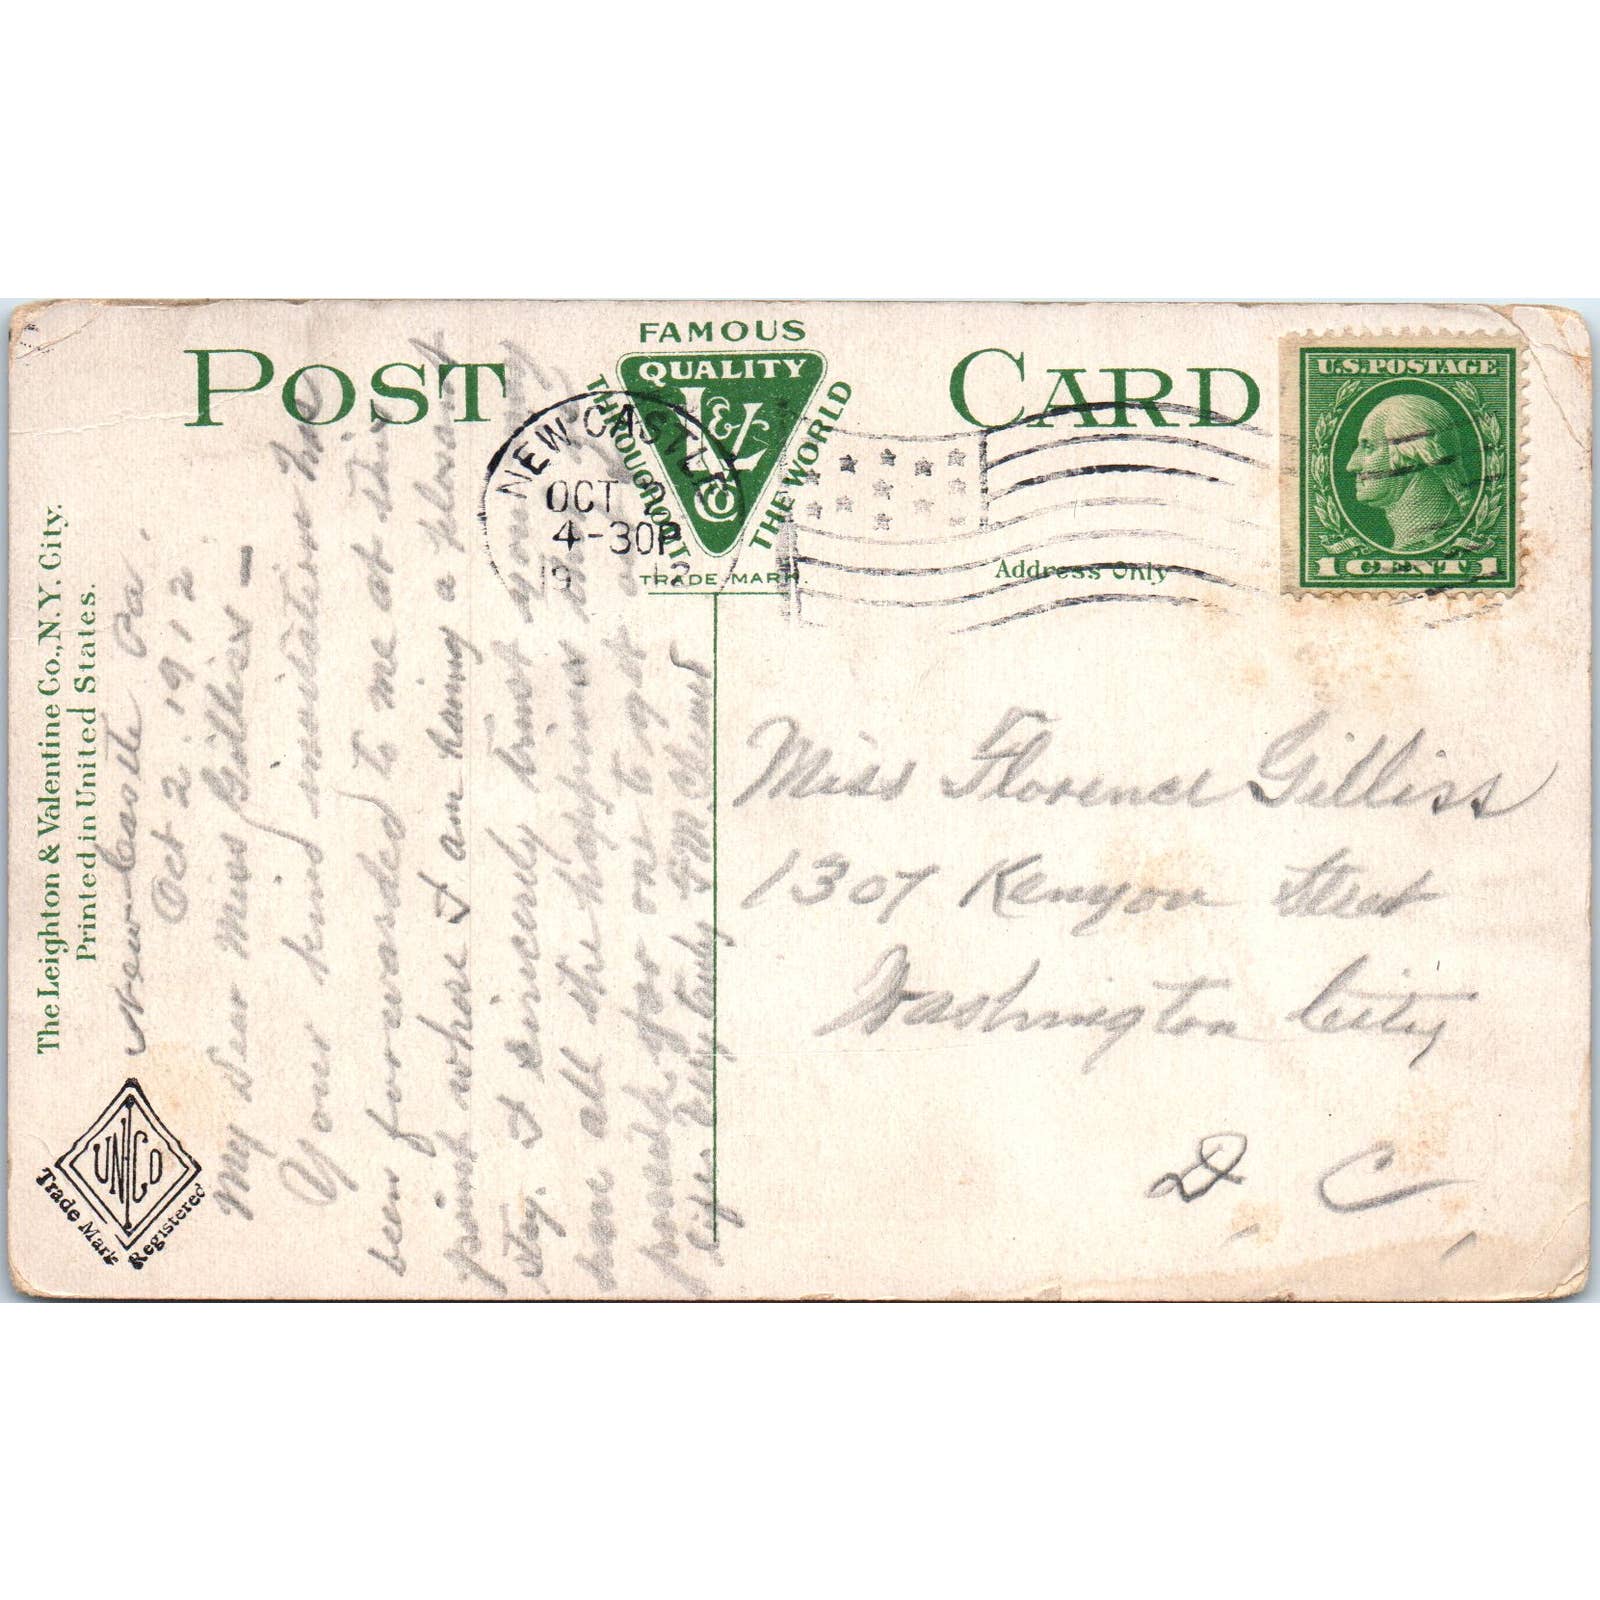 POST CARD
FAMOUS
QUALITY
L&V
CO
THROUGHOUT THE WORLD
TRADE MARK.
NEW CASTLE
OCT 2
4-30P
1912
U.S. POSTAGE
1 CENT 1
Address Only
The Leighton & Valentine Co., N.Y. City.
Printed in United States.
UNCO
Trade Mark Registered
New Castle Pa.
Oct 2 1912
My Dear Miss Gilliss –
Your kind invitation has
been forwarded to me at this
point where I am having a pleasant
stay. I sincerely trust you may
have all the happiness that is
possible for one to get out of
life. Very truly F M
Miss Florence Gilliss
1307 Kenyon Street
Washington City
D. C.